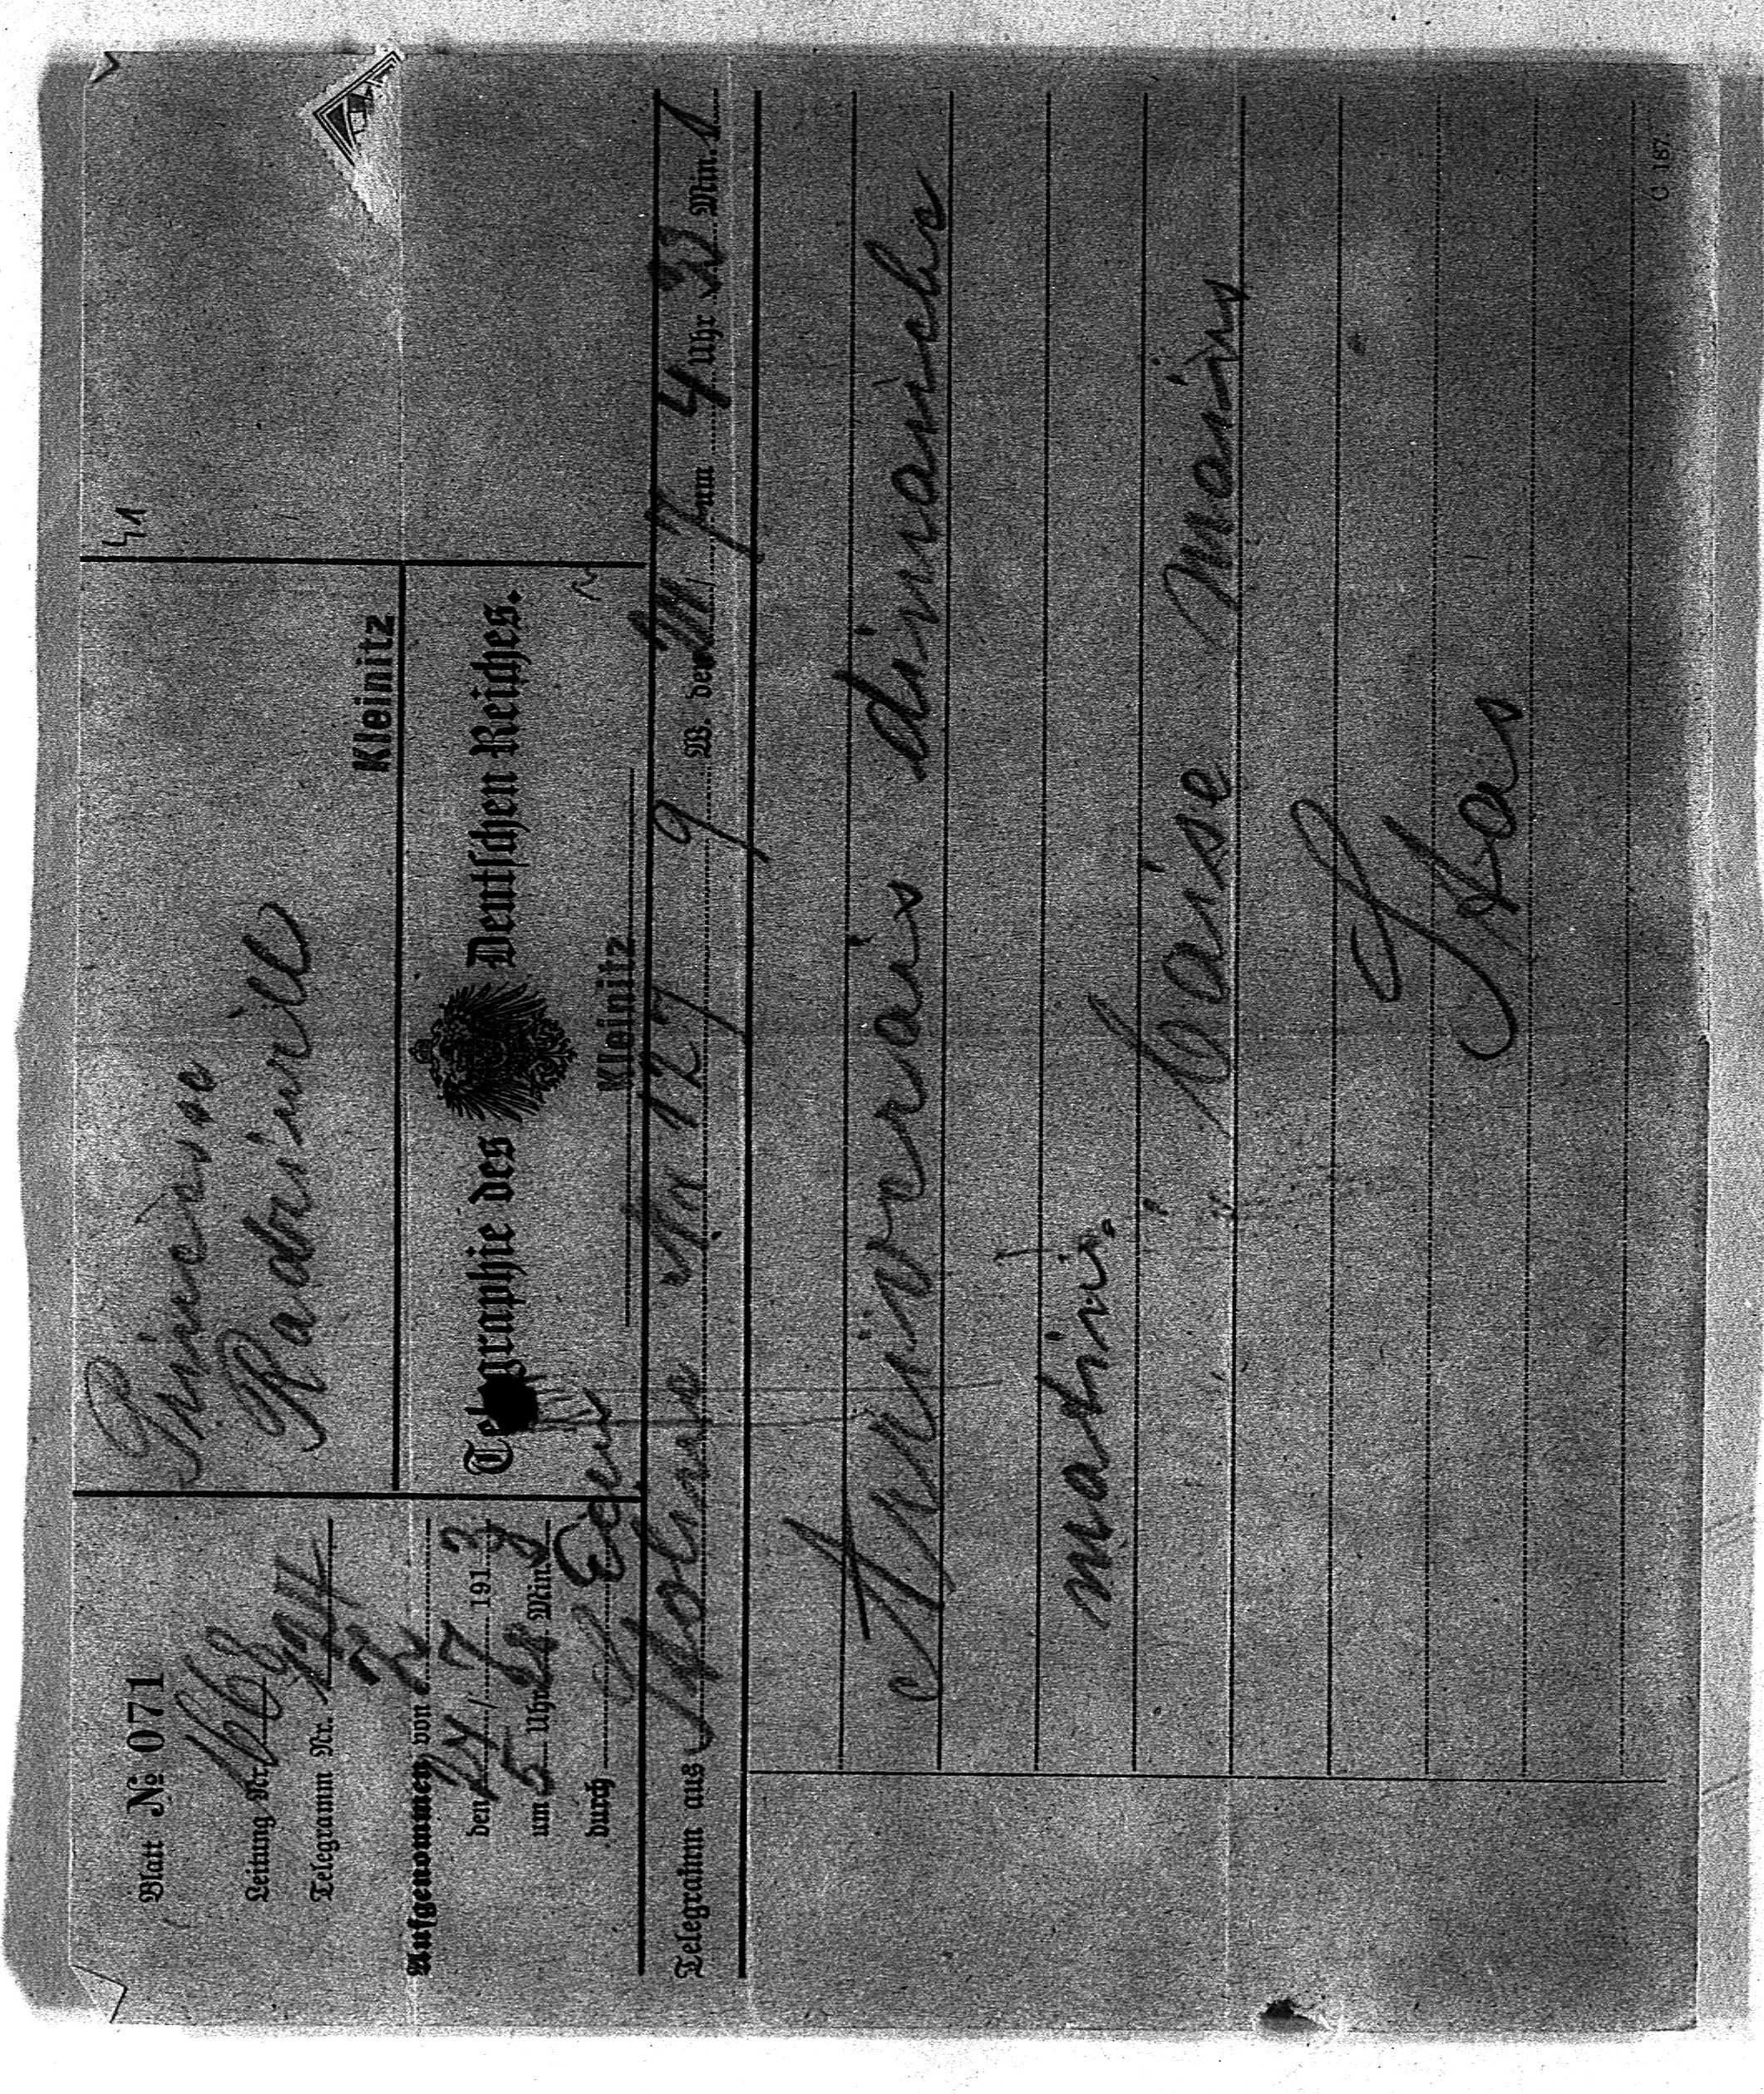 Blatt № 071
Leitung Nr. 668
Telegramm Nr.
Aufgenommen von
den 24/7 1913
um 5 Uhr Min.
durch
41
Princesse
Radziwill
Kleinitz
Telegraphie des Deutschen Reiches.
Kleinitz
Telegramm aus Stolnie Nr 127 9 W. den 24/7 um 4 Uhr 30 Min.
Arriverais dimanche
matin.
baise mains
Stas
C 187